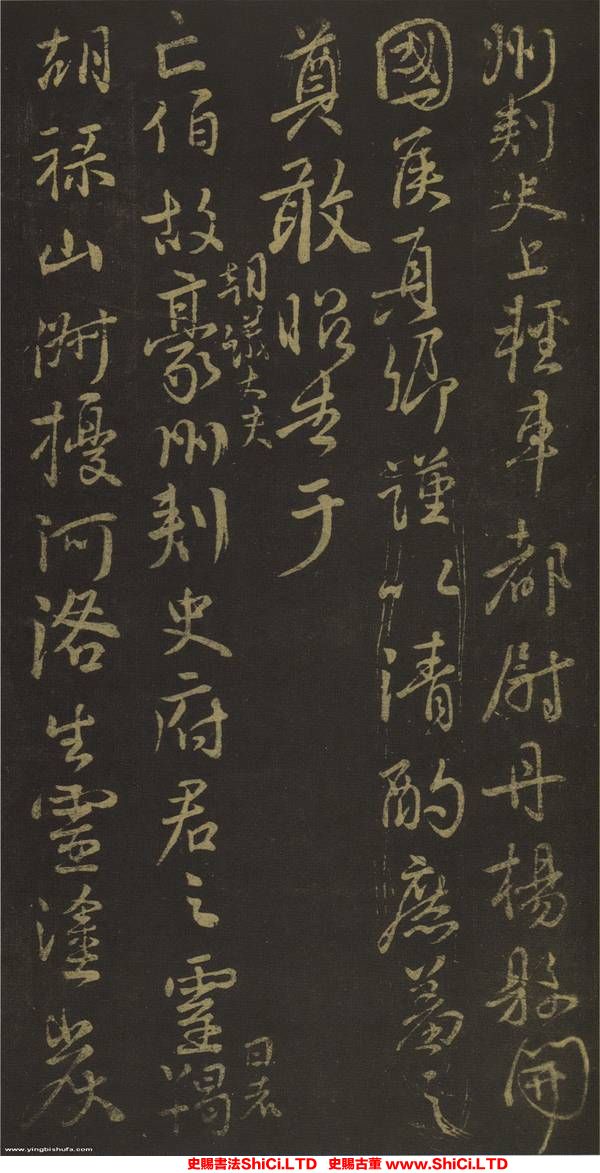 州刺史上輕車都尉丹楊縣開
國侯真卿謹以清酌庶羞之
奠敢昭告于
亡伯故豪州刺史府君之靈曰
朝議大夫
者
胡祿山俶擾河洛生靈塗炭
www.yingbishufa.com
史賜書法ShiCi.LTD 史賜古董 www.ShiCi.LTD